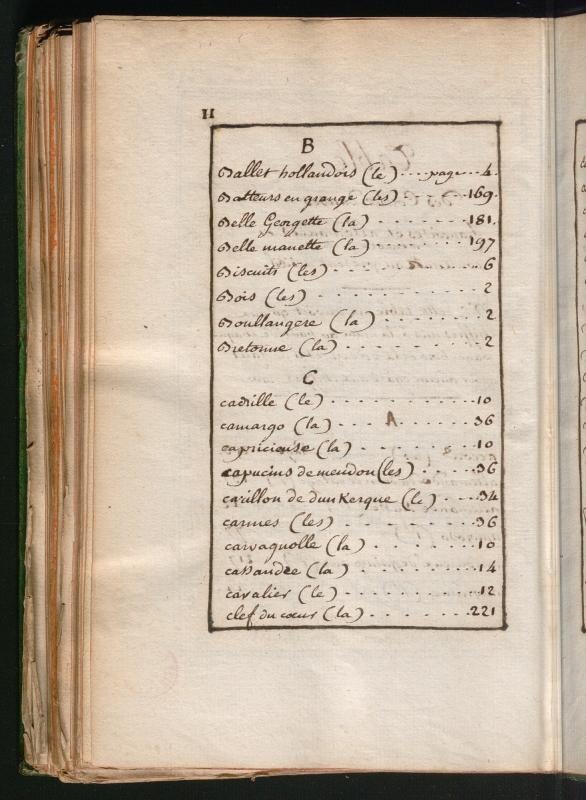 II
B
Ballet hollandois (le) .... page .. 4.
Batteurs en grange (les) ...... 169.
Belle Georgette (la) ........ 181.
Belle manette (la) ........ 197
Biscuits (les) ............ 6
Bois (les) ............ 2
Boullangere (la) .......... 2
Bretonne (la) ............ 2
C
cadrille (le) ............ 10
camargo (la) ............ 36
capricieuse (la) .......... 10
capucins de meudon (les) ...... 36
carillon de dunkerque (le) .... 34
carmes (les) ............ 36
carvaquolle (la) .......... 10
cassandre (la) .......... 14
cavalier (le) ............ 12
clef du cœur (la) ......... 221